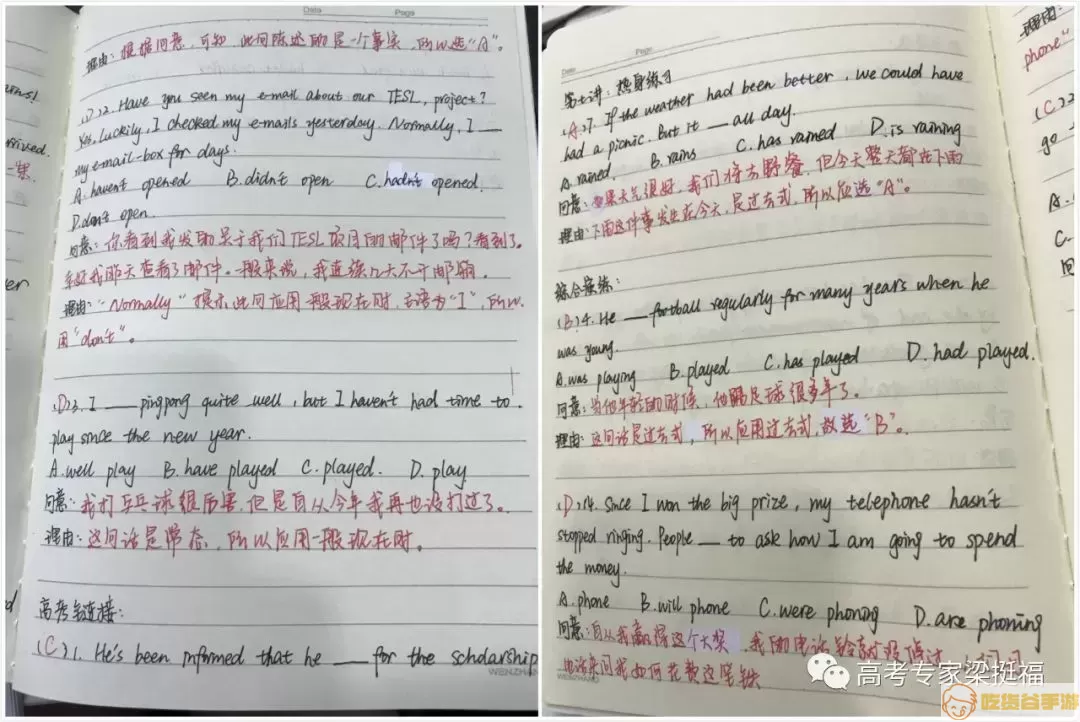 Date Page
理由：根据问意，可知，此问陈述的是一个事实，所以选“A”。
(D)2. Have you seen my e-mail about our TESL, project?
Yes, Luckily, I checked my e-mails yesterday. Normally, I ___
my e-mail-box for days.
A. haven't opened B. didn't open C. hadn't opened.
D. don't open.
问意：你看到我发的关于我们TESL项目的邮件了吗？看到了。
幸好我昨天查看了邮件。一般来说，我连续几天不开邮箱。
理由：“Normally”提示此问应用一般现在时，主语为“I”，所以
用“don't”。
(D)3. I ___ pingpong quite well, but I haven't had time to
play since the new year.
A. well play B. have played C. played. D. play
问意：我打乒乓球很厉害，但是自从今年我再也没打过了。
理由：这问话是常态，所以应用一般现在时。
高考链接：
(C)1. He's been informed that he ___ for the scholarship
WENZHANG
arrived.
Date Page
第七讲：热身练习
(A)7. If the weather had been better, we could have
had a picnic. But it ___ all day.
A. rained B. rains C. has rained D. is raining
问意：如果天气很好，我们将去野餐，但今天整天都在下雨
理由：下雨这件事发生在今天，是过去式，所以应选“A”。
综合演练：
(B)4. He ___ football regularly for many years when he
was young.
A. was playing B. played C. has played D. had played.
问意：当他年轻的时候，他踢足球很多年了。
理由：这问话是过去式，所以应用过去式，故选“B”。
(D)14. Since I won the big prize, my telephone hasn't
stopped ringing. People ___ to ask how I am going to spend
the money.
A. phone B. will phone C. were phoning D. are phoning
问意：自从我赢得这个大奖，我的电话铃
电话来问我如何花费这笔钱
WENZHANG
理由：
phone”
(C)2
go
A.
C.
问
高考专家梁挺福
吃货谷手游